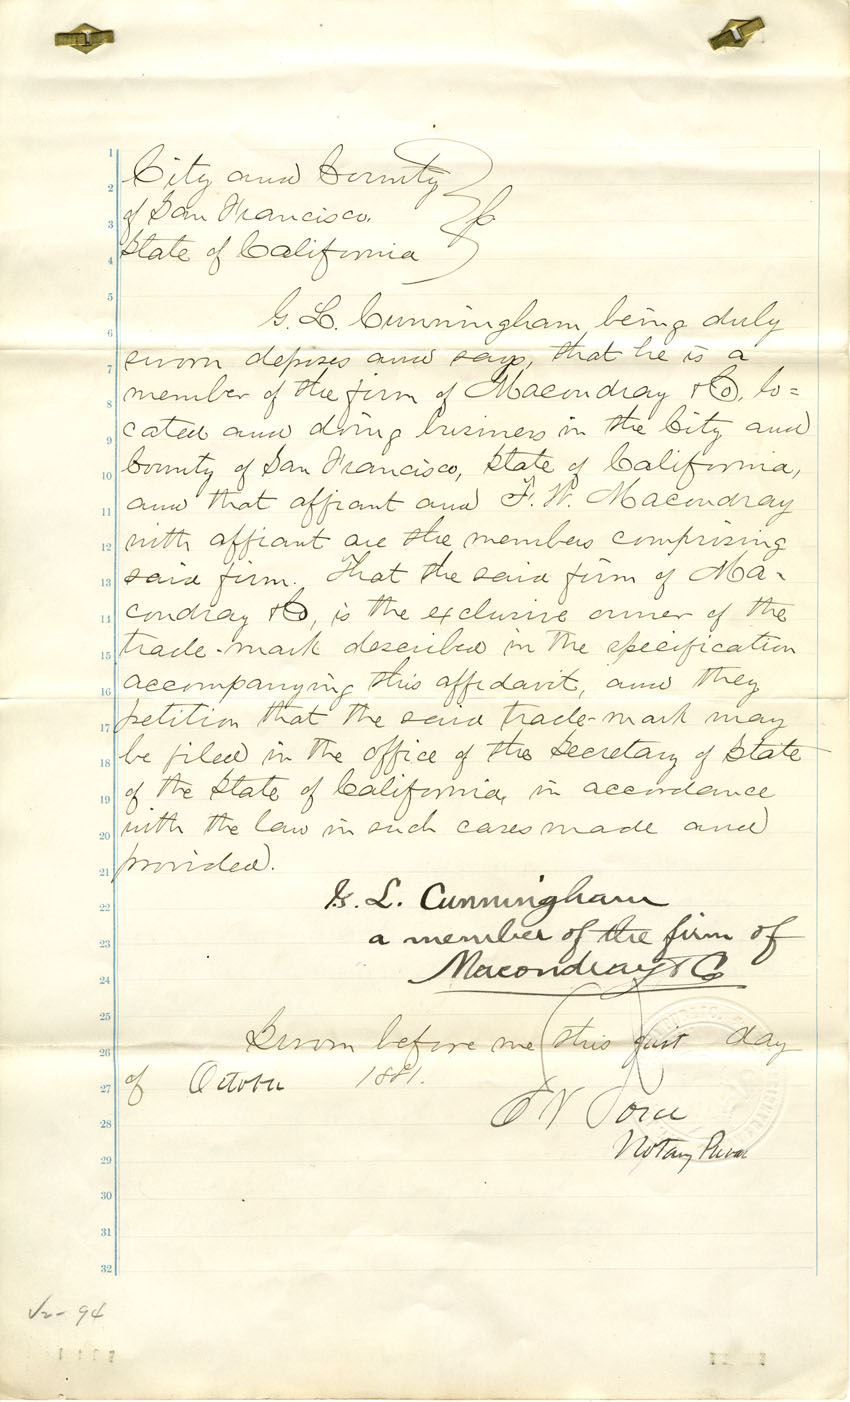 City and County
of San Francisco.
State of California
ss
G. L. Cunningham, being duly
sworn deposes and says, that he is a
member of the firm of Macondray & Co. lo=
cated and doing business in the City and
County of San Francisco, State of California,
and that affiant and F. W. Macondray
with affiant are the members comprising
said firm. That the said firm of Ma-
condray & Co, is the exclusive owner of the
trade-mark described in the specification
accompanying this affidavit, and they
petition that the said trade-mark may
be filed in the office of the Secretary of State
of the State of California, in accordance
with the law in such cases made and
provided.
G. L. Cunningham
a member of the firm of
Macondray & Co
Sworn before me this first day
of October 1881.
Notary Public
1
2
3
4
5
6
7
8
9
10
11
12
13
14
15
16
17
18
19
20
21
22
23
24
25
26
27
28
29
30
31
32